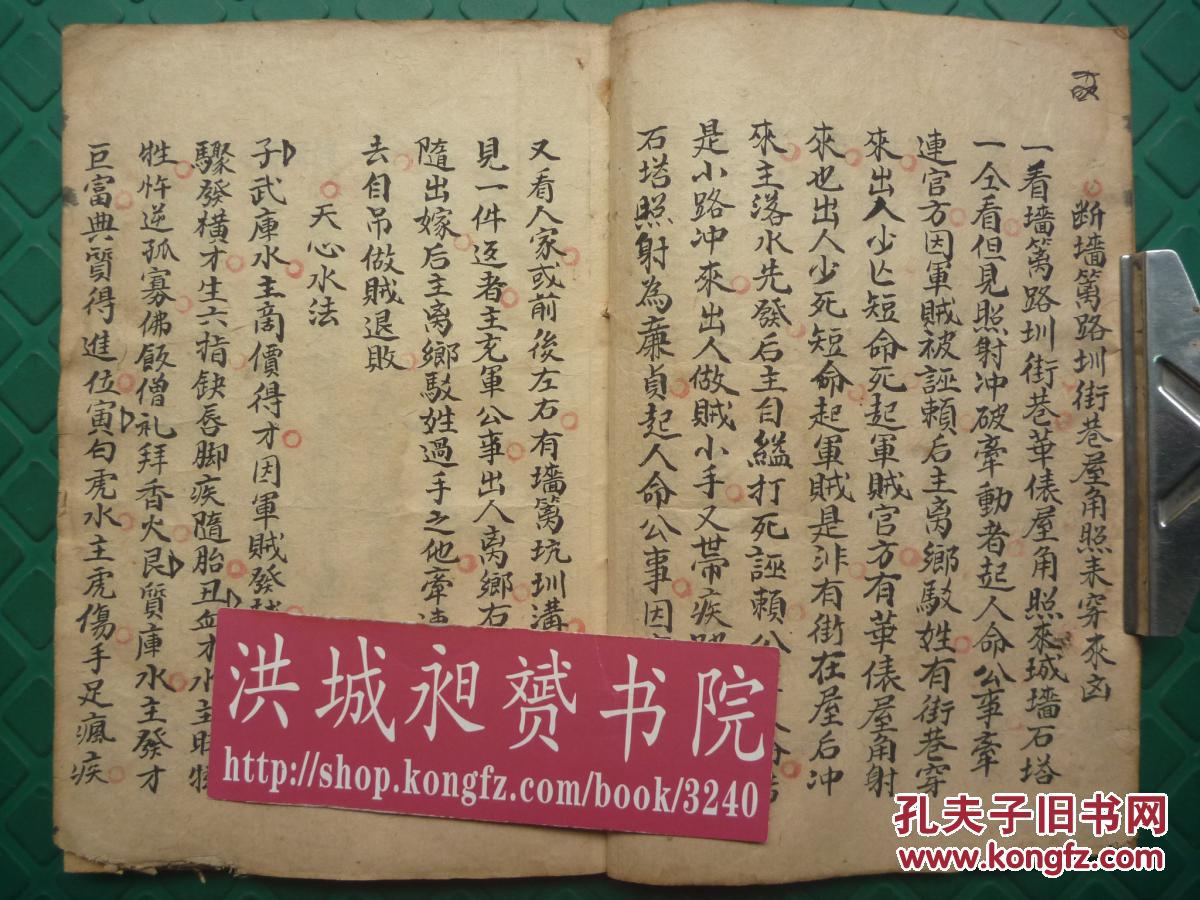 断墻篱路圳街巷屋角照来穿來凶
一看墻篱路圳街巷華俵屋角照來城墻石塔
一仝看但見照射冲破牽動者起人命公事牽
連官方因軍賊被誣賴后主离鄉駁姓有街巷穿
來出人少亡短命死起軍賊官方有華俵屋角射
來也出人少死短命起軍賊是非有街在屋后冲
來主落水先發后主自縊打死誣賴公
是小路冲來出人做賊小手又带疾
石塔照射為廉貞起人命公事因
又看人家或前後左右有墻篱坑圳溝
見一件返者主充軍公事出人离鄉右
隨出嫁后主离鄉駁姓過手之他牽連
去自吊做賊退敗
天心水法
子武庫水主商價得才因軍賊發
驟發橫才生六指缺唇脚疾隨胎丑血才水主
牲忤逆孤寡佛飯僧礼拜香火艮質庫水主發才
巨富典質得進位寅白虎水主虎傷手足瘋疾
洪城昶赟书院
http://shop.kongfz.com/book/3240
孔夫子旧书网
www.kongfz.com